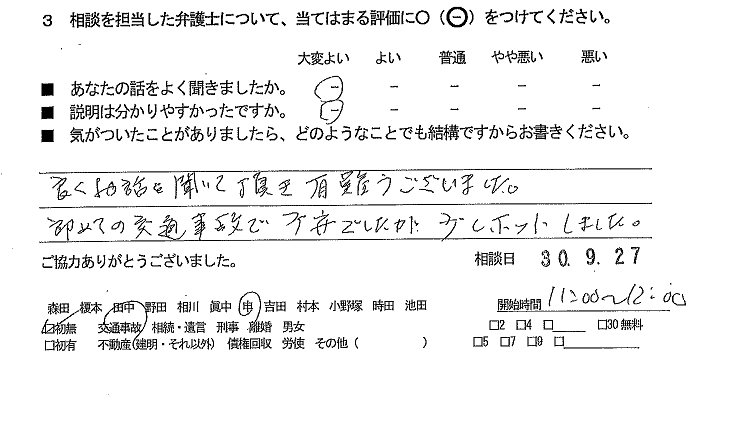 3 相談を担当した弁護士について、当てはまる評価に○（㊀）をつけてください。
大変よい よい 普通 やや悪い 悪い
■ あなたの話をよく聞きましたか。 － － － － －
■ 説明は分かりやすかったですか。 － － － － －
■ 気がついたことがありましたら、どのようなことでも結構ですからお書きください。
良くお話を聞いて頂き有難うございました。
初めての交通事故で不安でしたが少しホットしました。
ご協力ありがとうございました。 相談日 30.9.27
森田 榎本 田中 野田 相川 眞中 申 吉田 村本 小野塚 時田 池田 開始時間 11:00～12:00
☑初無 交通事故 相続・遺言 刑事 離婚 男女 □2 □4 □ □30無料
□初有 不動産（建明・それ以外） 債権回収 労使 その他（ ） □5 □7 □9 □